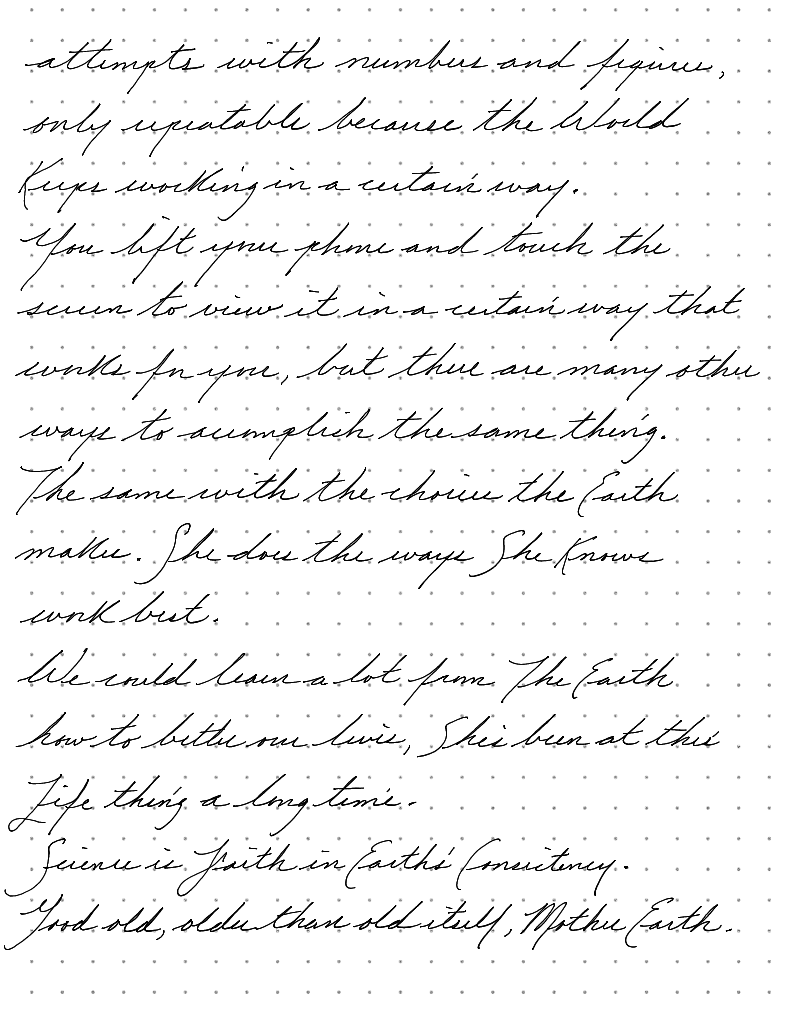 attempts with numbers and figures,
only repeatable because the World
Keeps working in a certain way.
You lift your phone and touch the
screen to view it in a certain way that
works for you, but there are many other
ways to accomplish the same thing.
The same with the choices the Earth
makes. She does the ways She Knows
work best.
We could learn a lot from The Earth
how to better our lives, She's been at this
Life thing a long time.
Science is Faith in Earth's Consistency.
Good old, older than old itself, Mother Earth.